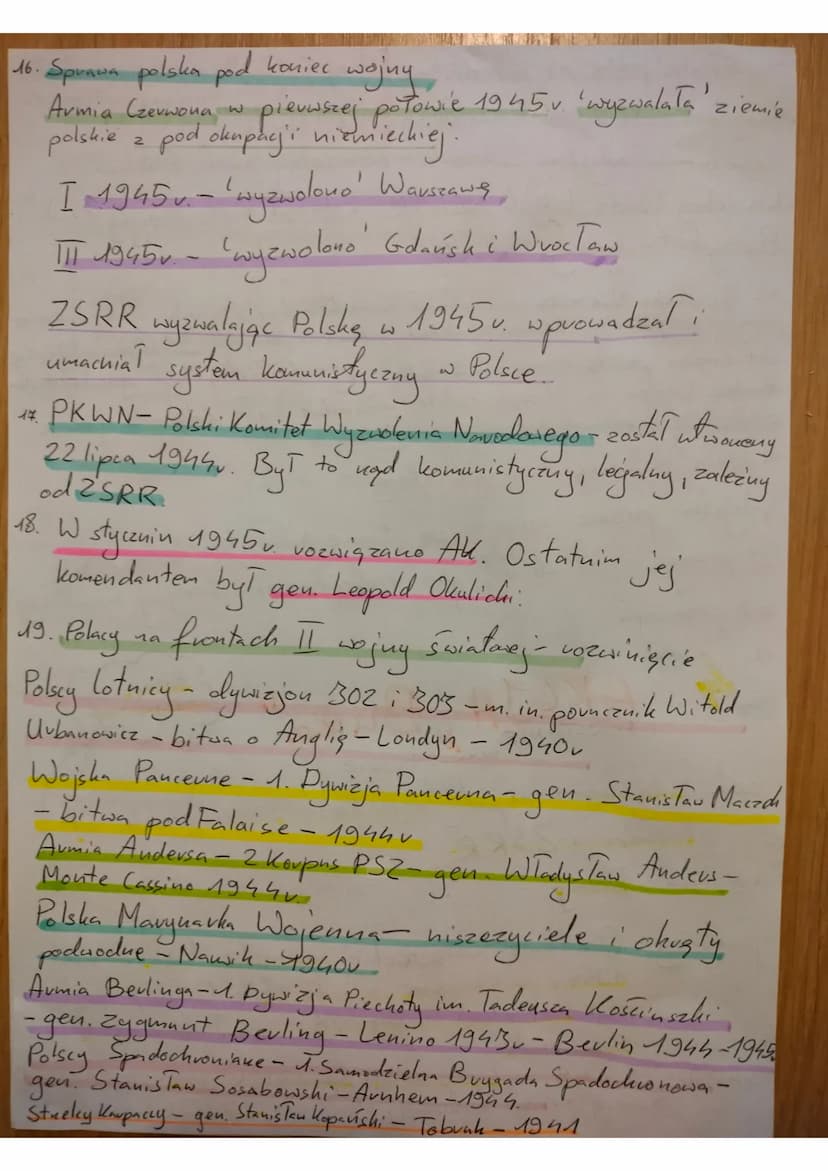 16. Sprawa polska pod koniec wojny
Armia Czerwona w pierwszej połowie 1945r. 'wyzwalała' ziemie
polskie z pod okupacji niemieckiej.
I 1945r. - 'wyzwolono' Warszawę
III 1945r. - 'wyzwolono' Gdańsk i Wrocław
ZSRR wyzwalając Polskę w 1945r. wprowadzał i
umacniał system komunistyczny w Polsce.
17. PKWN - Polski Komitet Wyzwolenia Narodowego - został utworzony
22 lipca 1944r. Był to rząd komunistyczny, legalny, zależny
od ZSRR.
18. W styczniu 1945r. rozwiązano AK. Ostatnim jej
komendantem był gen. Leopold Okulicki.
19. Polacy na frontach II wojny światowej - rozwinięcie
Polscy lotnicy - dywizjon 302 i 303 - m. in. porucznik Witold
Urbanowicz - bitwa o Anglię - Londyn - 1940r
Wojska Pancerne - 1. Dywizja Pancerna - gen. Stanisław Maczek
- bitwa pod Falaise - 1944r
Armia Andersa - 2 Korpus PSZ - gen. Władysław Anders -
Monte Cassino 1944r.
Polska Marynarka Wojenna - niszczyciele i okręty
podwodne - Narwik - 1940r
Armia Berlinga - 1. Dywizja Piechoty im. Tadeusza Kościuszki
- gen. Zygmunt Berling - Lenino 1943r - Berlin 1944-1945
Polscy Spadochroniarze - 1. Samodzielna Brygada Spadochronowa -
gen. Stanisław Sosabowski - Arnhem - 1944.
Strzelcy Karpaccy - gen. Stanisław Kopański - Tobruk - 1941